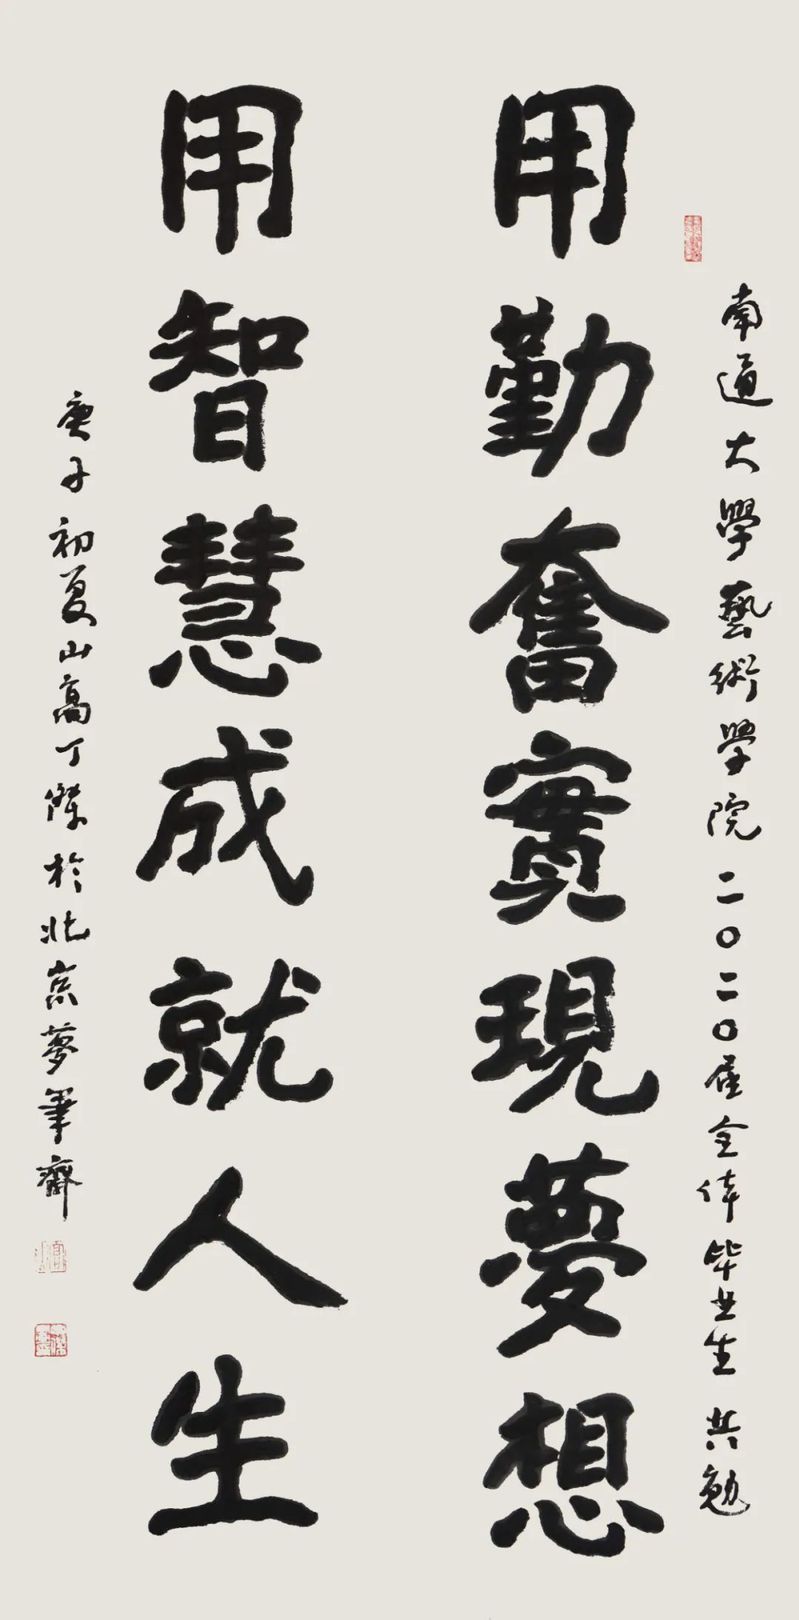 南通大學藝術學院二〇二〇届全体毕业生共勉
用勤奮實現夢想
用智慧成就人生
庚子初夏山高丁傑於北京夢筆齋